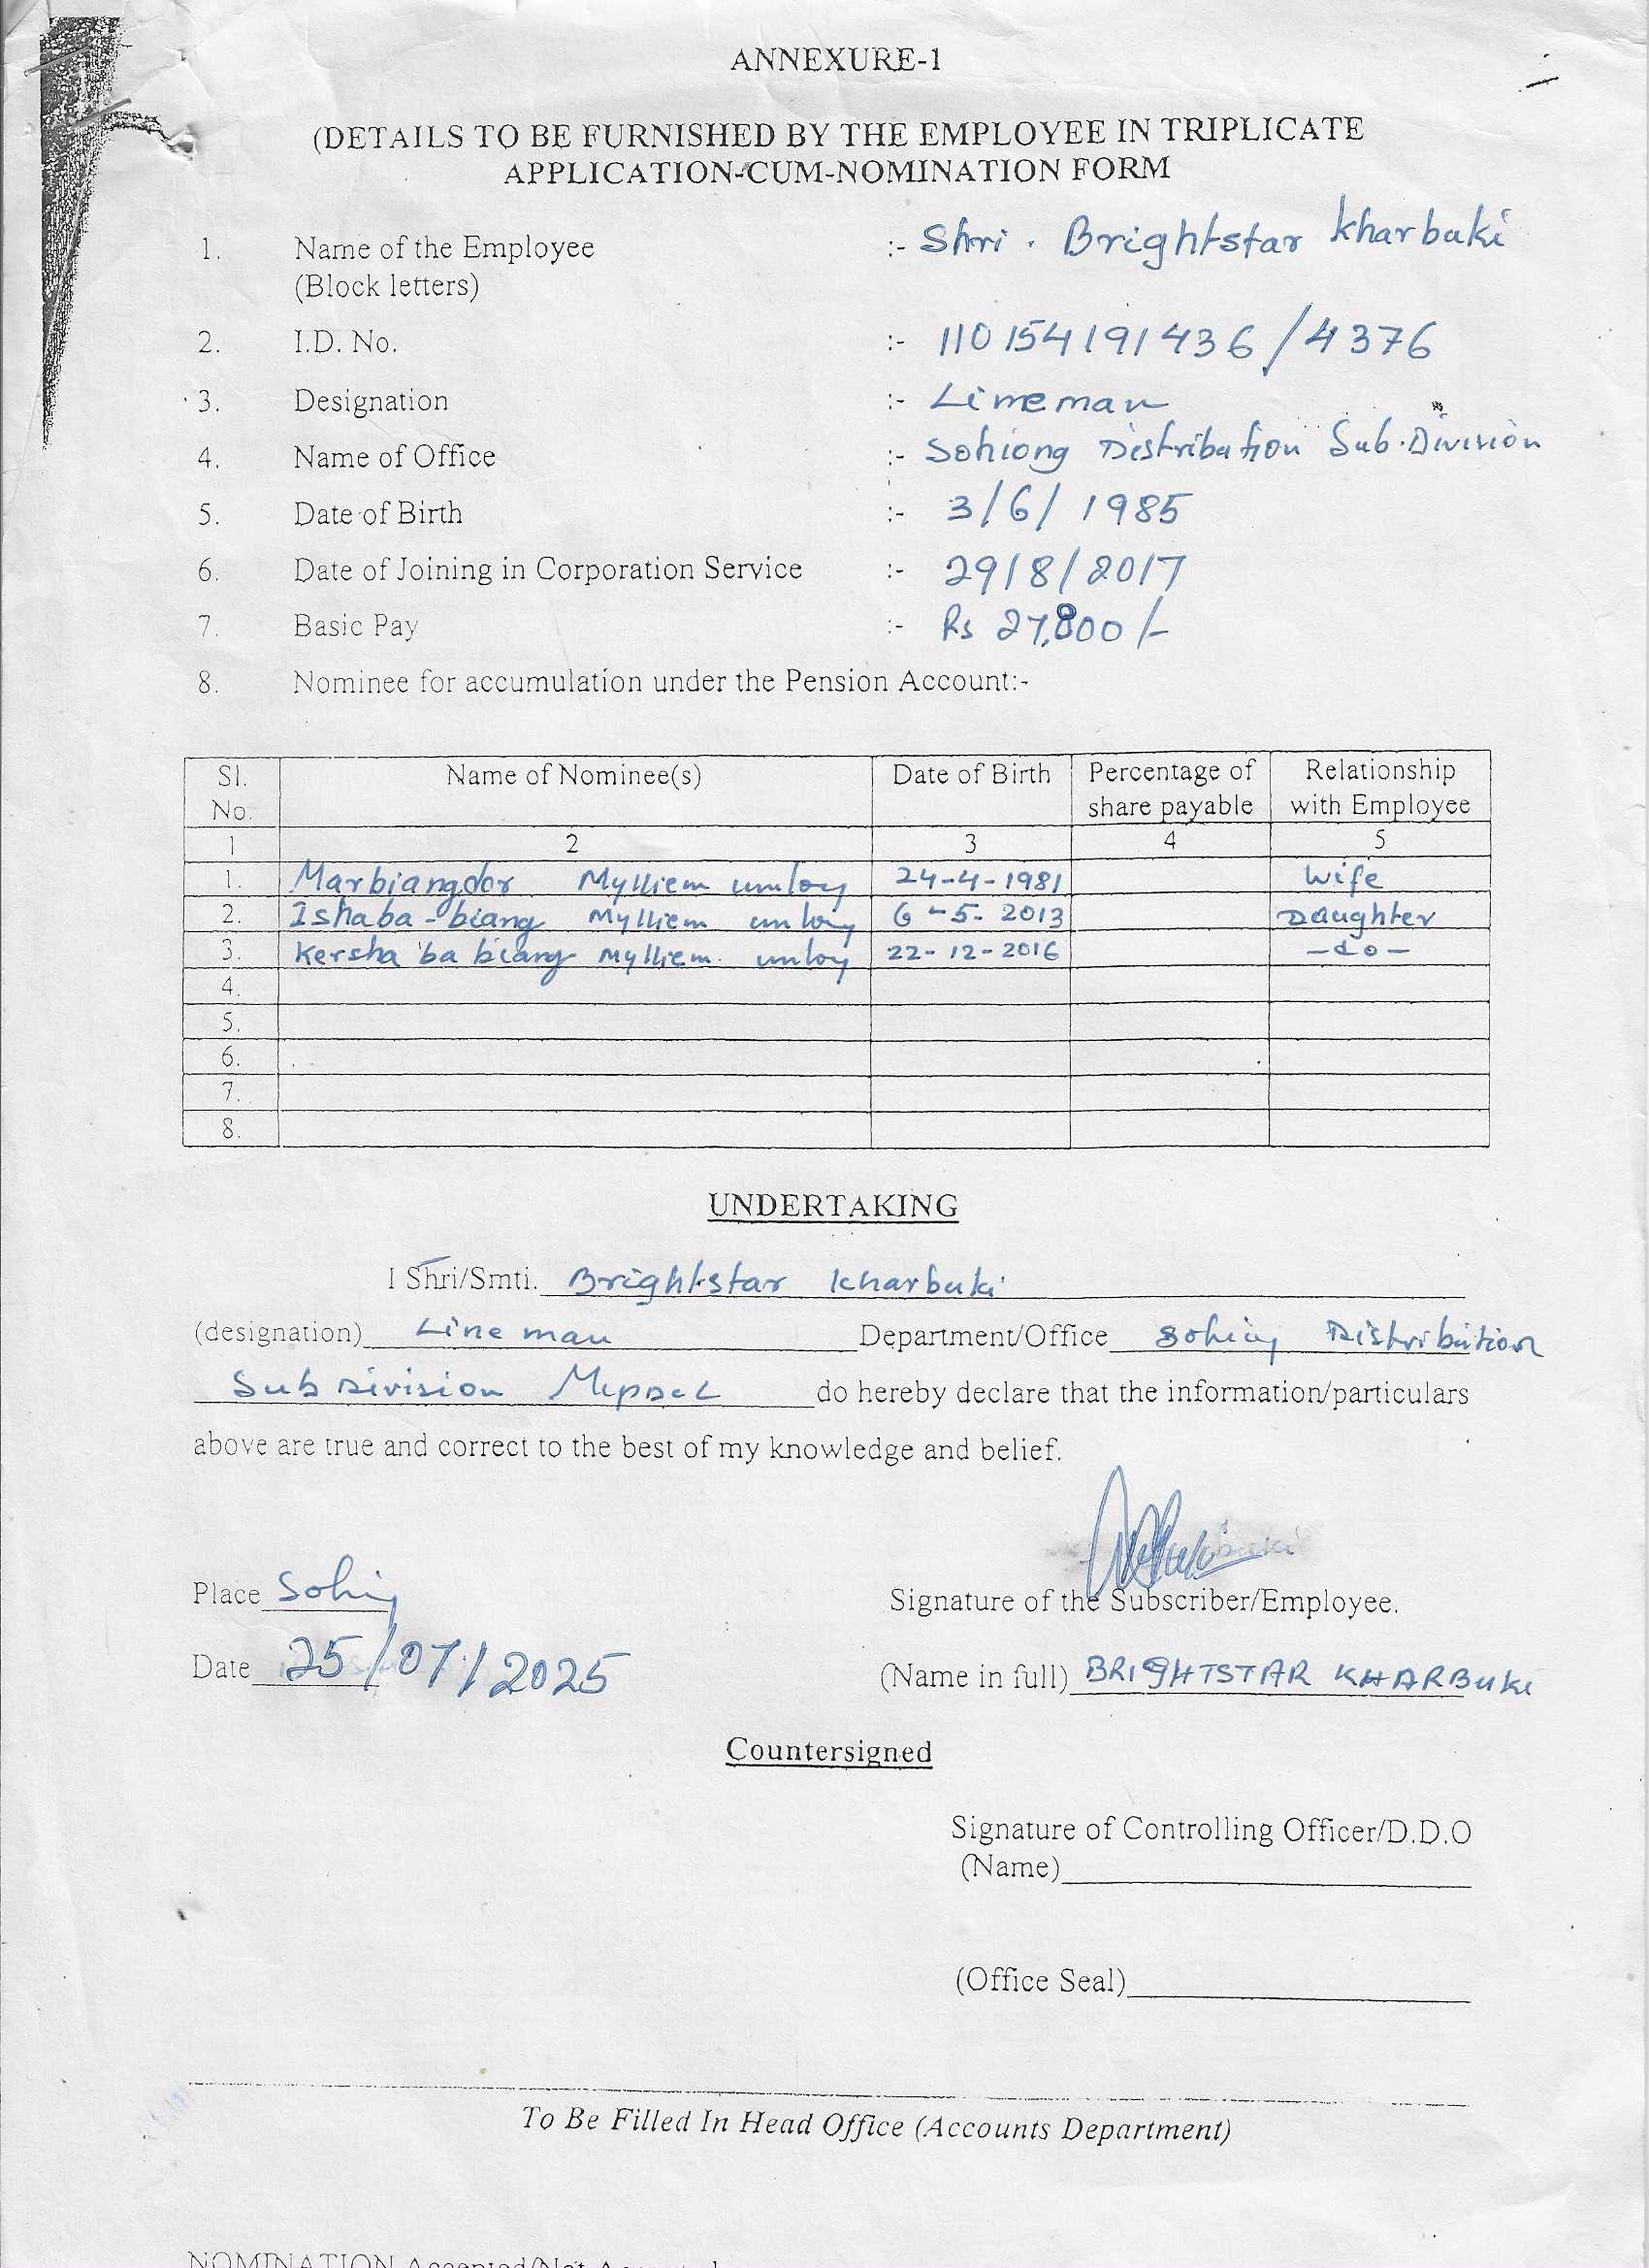 ANNEXURE-1
(DETAILS TO BE FURNISHED BY THE EMPLOYEE IN TRIPLICATE
APPLICATION-CUM-NOMINATION FORM
1. Name of the Employee :- Shri. Brightstar Kharbuki
(Block letters)
2. I.D. No. :- 110154191436/4376
3. Designation :- Lineman
4. Name of Office :- Sohiong Distribution Sub-Division
5. Date of Birth :- 3/6/1985
6. Date of Joining in Corporation Service :- 29/8/2017
7. Basic Pay :- Rs 27,800/-
8. Nominee for accumulation under the Pension Account:-
Sl. Name of Nominee(s) Date of Birth Percentage of Relationship
No. share payable with Employee
1 2 3 4 5
1. Marbiangdor Mylliem umlong 24-4-1981 Wife
2. Ishaba-biang Mylliem umlong 6-5-2013 Daughter
3. Kersha ba biang Mylliem umlong 22-12-2016 -do-
4.
5.
6.
7.
8.
UNDERTAKING
I Shri/Smti. Brightstar Kharbuki
(designation) Line man Department/Office Sohiong Distribution
Sub Division MePDCL do hereby declare that the information/particulars
above are true and correct to the best of my knowledge and belief.
Place Sohiong
Signature of the Subscriber/Employee.
Date 25/07/2025 (Name in full) BRIGHTSTAR KHARBUKI
Countersigned
Signature of Controlling Officer/D.D.O
(Name)
(Office Seal)
To Be Filled In Head Office (Accounts Department)
NOMINATION Accepted/Not Accepted